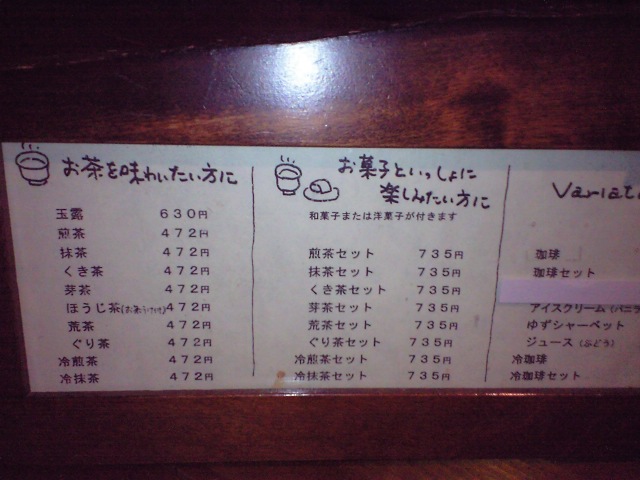 お茶を味わいたい方に
玉露 630円
煎茶 472円
抹茶 472円
くき茶 472円
芽茶 472円
ほうじ茶 472円
荒茶 472円
ぐり茶 472円
冷煎茶 472円
冷抹茶 472円
お菓子といっしょに
楽しみたい方に
和菓子または洋菓子が付きます
煎茶セット 735円
抹茶セット 735円
くき茶セット 735円
芽茶セット 735円
荒茶セット 735円
ぐり茶セット 735円
冷煎茶セット 735円
冷抹茶セット 735円
Variati
珈琲
珈琲セット
アイスクリーム(バニラ
ゆずシャーベット
ジュース(ぶどう)
冷珈琲
冷珈琲セット